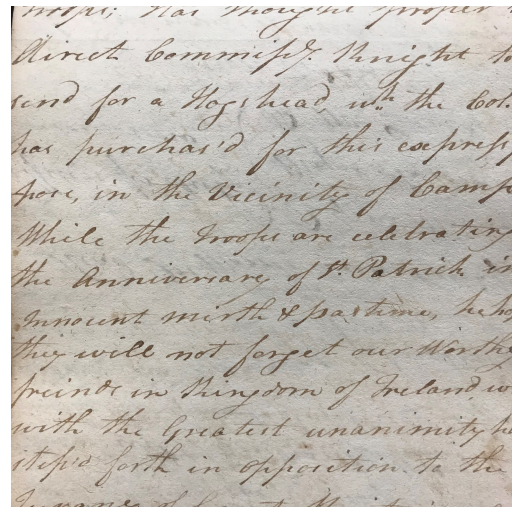 troops; has thought proper
direct Commiss.y Knight to
send for a Hogshead, wh the Col.
has purchas'd for this express
pose, in the Vicinity of Camp
While the troops are celebrating
the Anniversary of St. Patrick in
Innocent mirth & pastime, he ho
they will not forget our Worthy
freinds in Kingdom of Ireland, w
with the Greatest unanimity ha
step'd forth in opposition to the